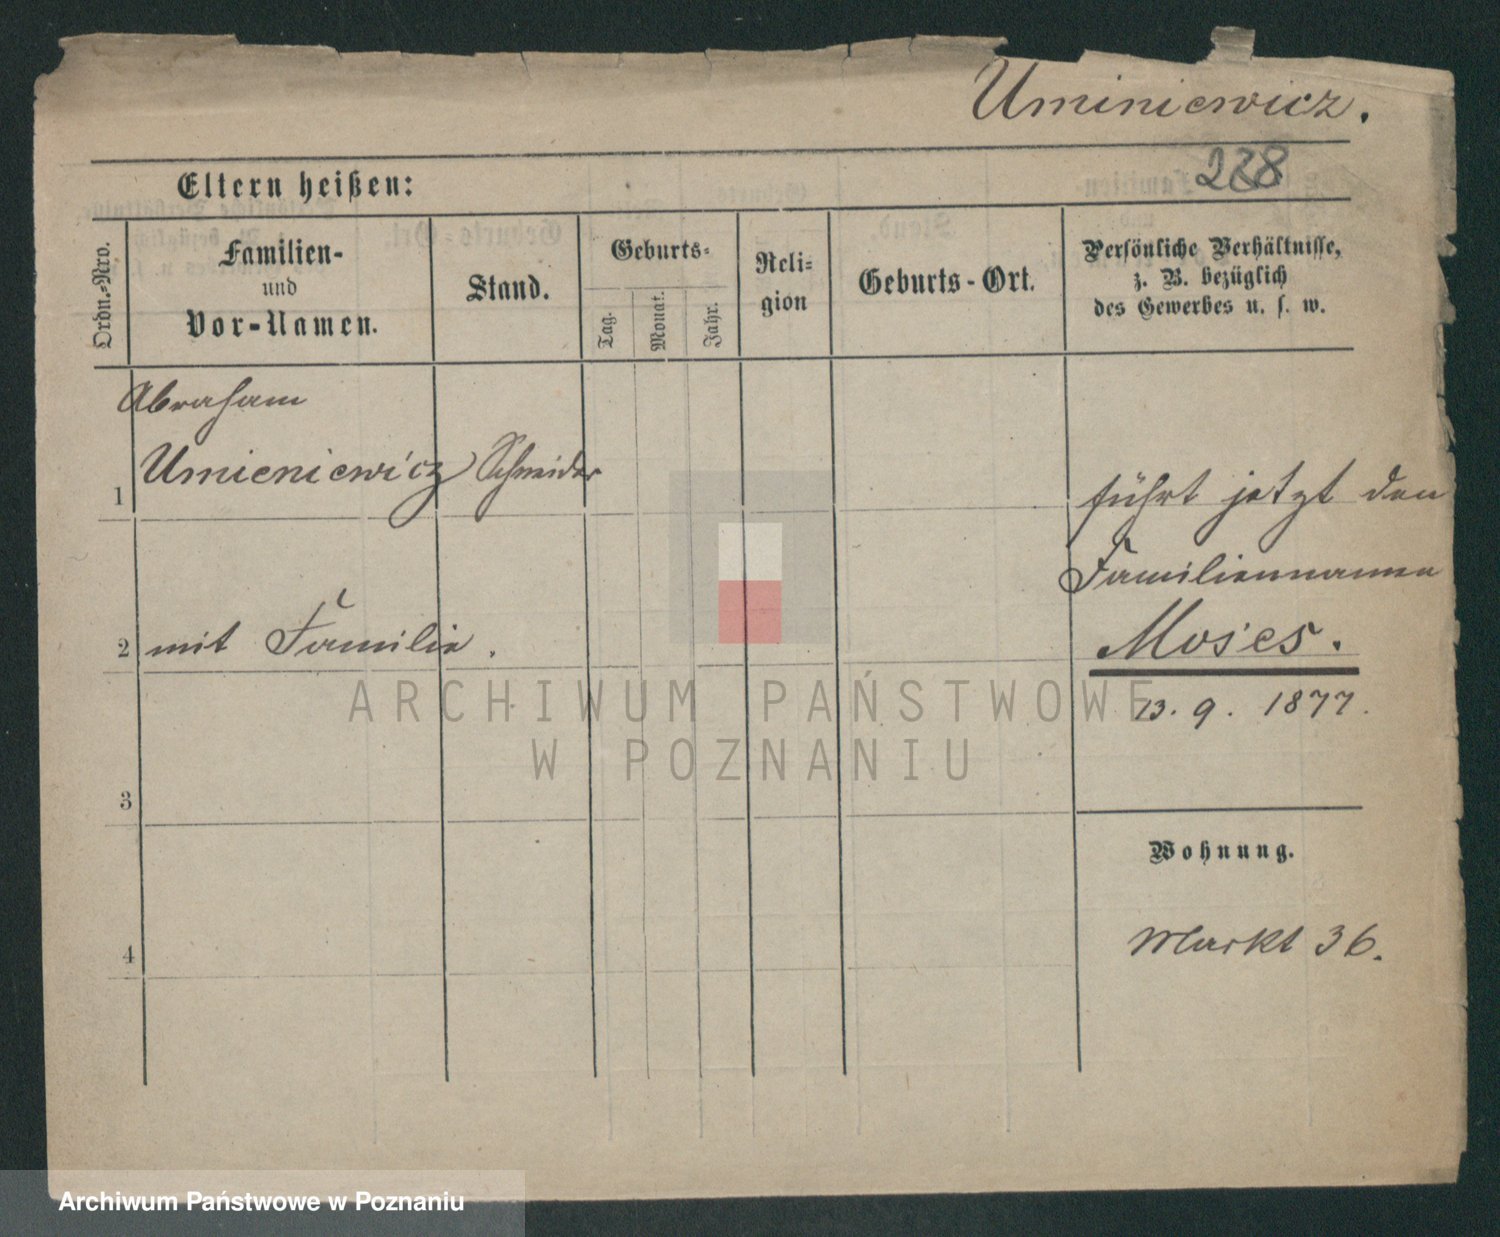 Uminiewicz.
228
Eltern heißen:
Ordn.-Nro.
Familien-
und
Vor-Namen.
Stand.
Geburts-
Tag.
Monat.
Jahr.
Reli-
gion
Geburts-Ort.
Persönliche Verhältnisse,
z. B. bezüglich
des Gewerbes u. s. w.
Abraham
1 Umieniewicz Schneider
führt jetzt den
Familiennamen
2 mit Familie.
Moses.
13. 9. 1877.
ARCHIWUM PAŃSTWOWE
W POZNANIU
3
Wohnung.
4
Markt 36.
Archiwum Państwowe w Poznaniu